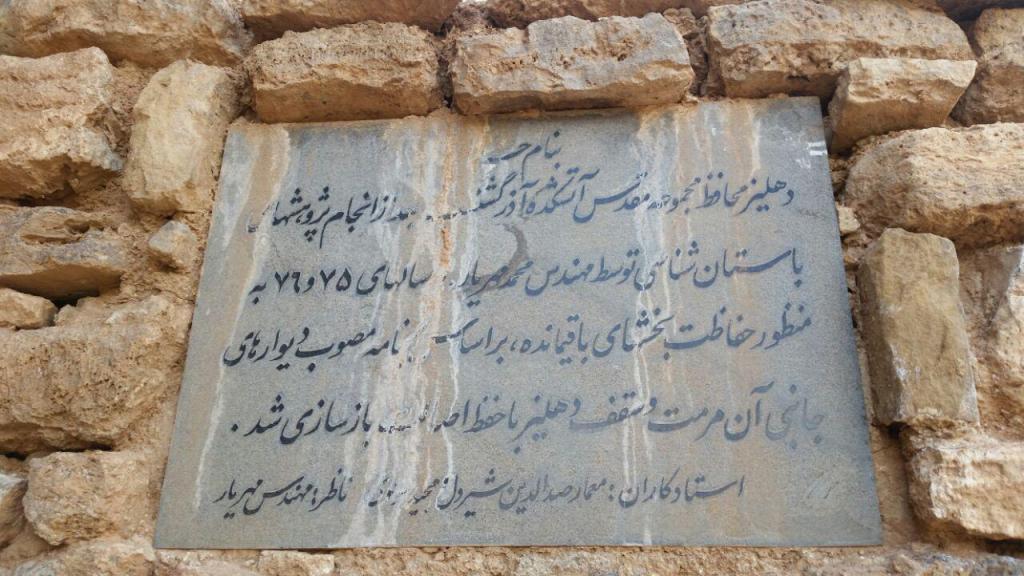 بنام
دهلیز محافظ مجموعه مقدس آتشکده آذرگشنسب بعد از انجام پژوهشهای
باستان شناسی توسط مهندس محمد مهریار سالهای ۷۵ و ۷۶ به
منظور حفاظت بخشهای باقیمانده، براساس برنامه مصوب دیوارهای
جانبی آن مرمت و سقف دهلیز با حفظ بازسازی شد.
استادکاران: معمار صدالدین شیردل مجید ناظر: مهندس مهریار